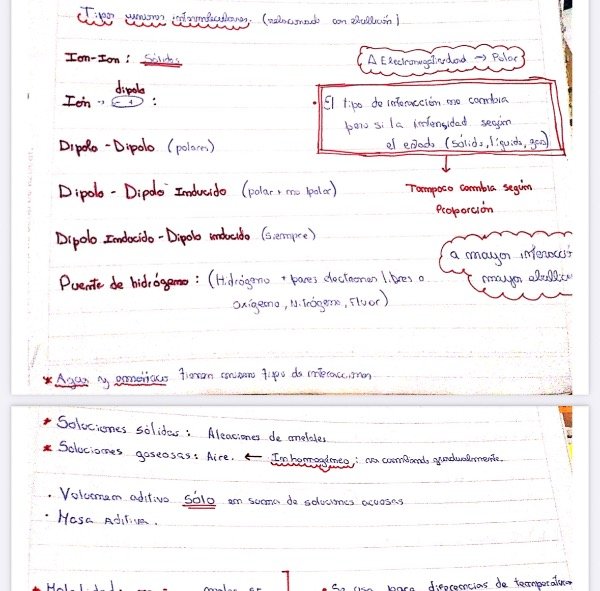 Tipos uniones intermoleculares. (relacionado con ebullición)
Ion-Ion : Sólidos
Δ Electronegatividad → Polar
dipolo
Ión - (- +) :
• El tipo de interacción no cambia
pero si la intensidad según
el estado (sólido, líquido, gas)
Dipolo - Dipolo (polares)
Dipolo - Dipolo Inducido (polar + no polar)
Tampoco cambia según
Proporción
Dipolo Inducido - Dipolo inducido (siempre)
a mayor interacci
mayor ebullic
Puente de hidrógeno : (Hidrógeno + pares electrones libres o
oxígeno, Nitrógeno, Fluor)
* Agua y amoniaco tienen mismo tipo de interacciones
* Soluciones sólidas : Aleaciones de metales
* Soluciones gaseosas : Aire. ← Inhomogéneo : va cambiando gradualmente.
• Volumen aditivo sólo en suma de soluciones acuosas
• Masa Aditiva.
• Se usa para diferencias de temperatura